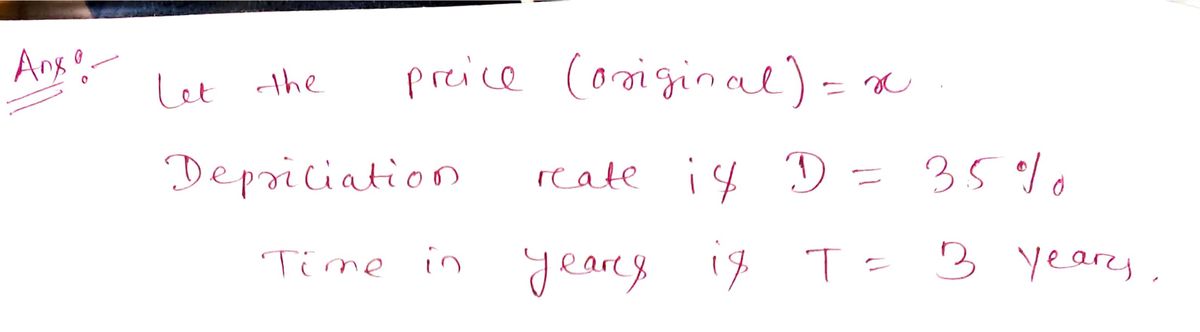 Ans:-
Let the preice (original) = x.
Depriciation reate is D = 35%
Time in years is T = 3 years.